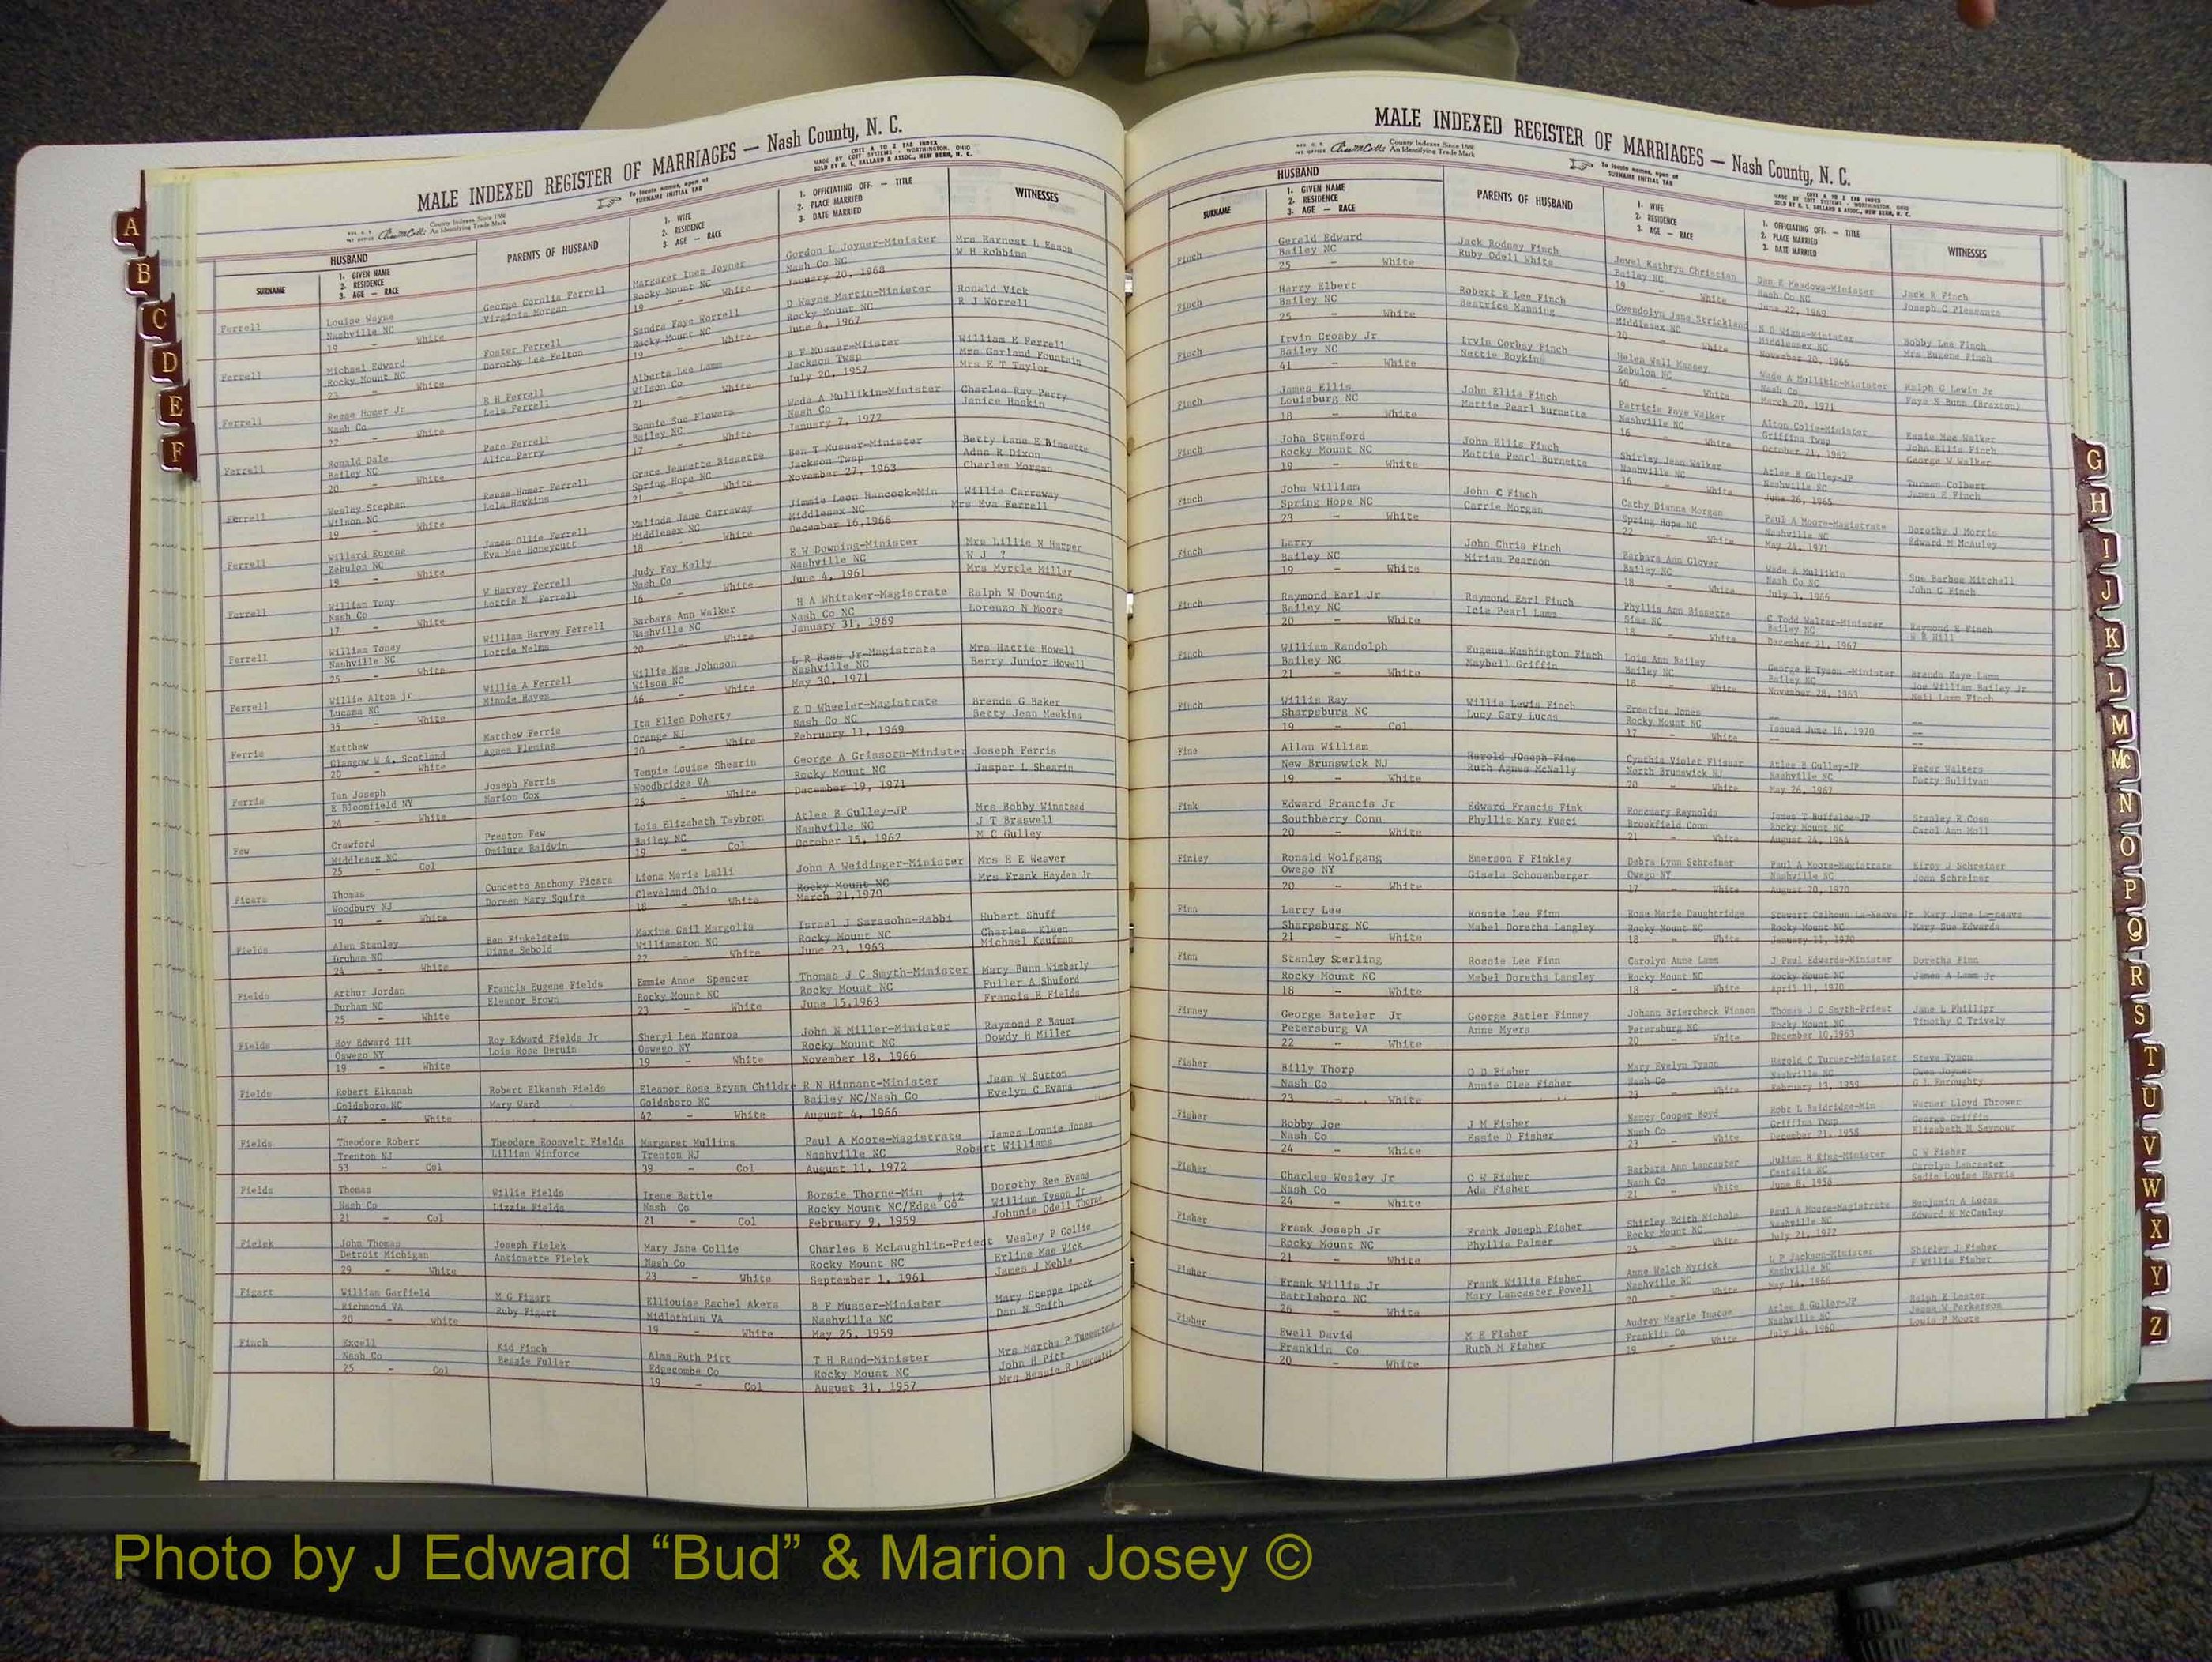 A
B
C
D
E
F
MALE INDEXED REGISTER OF MARRIAGES — Nash County, N. C.
County Indexes Since 1888
An Identifying Trade Mark
To locate names, open at
SURNAME INITIAL TAB
COTT A TO Z TAB INDEX
MADE BY COTT SYSTEMS - WORTHINGTON, OHIO
SOLD BY E. L. BALLARD & ASSOC., NEW BERN, N. C.
HUSBAND
SURNAME
1. GIVEN NAME
2. RESIDENCE
3. AGE — RACE
PARENTS OF HUSBAND
1. WIFE
2. RESIDENCE
3. AGE — RACE
1. OFFICIATING OFF. — TITLE
2. PLACE MARRIED
3. DATE MARRIED
WITNESSES
Ferrell Louise Wayne George Cornlia Ferrell Margaret Inez Joyner Gordon L Joyner-Minister Mrs Earnest L Eason
Nashville NC Virginia Morgan Rocky Mount NC Nash Co NC W H Robbins
19 - White 19 - White January 20, 1968
Ferrell Michael Edward Foster Ferrell Sandra Faye Worrell D Wayne Martin-Minister Ronald Vick
Rocky Mount NC Dorothy Lee Felton Rocky Mount NC Rocky Mount NC R J Worrell
23 - White 19 - White June 4, 1967
Ferrell Reese Homer Jr R H Ferrell Alberta Lee Lamm B F Musser-Miister William E Ferrell
Nash Co Lela Ferrell Wilson Co Jackson Twsp Mrs Garland Fountain
22 - White 21 - White July 20, 1957 Mrs E T Taylor
Ferrell Ronald Dale Pete Ferrell Bonnie Sue Flowers Wade A Mullikin-Minister Charles Ray Perry
Bailey NC Alice Perry Bailey NC Nash Co Janice Hankin
20 - White 17 - White January 7, 1972
Ferrell Wesley Stephan Reese Homer Ferrell Grace Jeanette Bissette Ben T Musser-Minister Betty Lane E Bissette
Wilson NC Lela Hawkins Spring Hope NC Jackson Twsp Adus R Dixon
19 - White 21 - White November 27, 1963 Charles Morgan
Ferrell Willard Eugene James Ollie Ferrell Malinda Jane Carraway Jimmie Leon Hancock-Min Willie Carraway
Zebulon NC Eva Mae Honeycutt Middlesex NC Middlesex NC Mrs Eva Ferrell
19 - White 18 - White December 16,1966
Ferrell William Tony W Harvey Ferrell Judy Fay Kelly E W Downing-Minister Mrs Lillie N Harper
Nash Co Lottie N Ferrell Nash Co Nashville NC W J ?
17 - White 16 - White June 4, 1961 Mrs Myrtle Miller
Ferrell William Toney William Harvey Ferrell Barbara Ann Walker H A Whitaker-Magistrate Ralph W Downing
Nashville NC Lottie Nelms Nashville NC Nash Co NC Lorenzo N Moore
25 - White 20 - White January 31, 1969
Ferrell Willie Alton jr Willie A Ferrell Willie Mae Johnson L R Bass Jr-Magistrate Mrs Hattie Howell
Lucama NC Minnie Hayes Wilson NC Nashville NC Berry Junior Howell
35 - White 46 - White May 30, 1971
Ferrie Matthew Matthew Ferrie Ita Ellen Doherty E D Wheeler-Magistrate Brenda G Baker
Glasgow W 4, Scotland Agnes Fleming Orange NJ Nash Co NC Betty Jean Meekins
20 - White 20 - White February 11, 1969
Ferris Ian Joseph Joseph Ferris Tempie Louise Shearin George A Grissorn-Minister Joseph Ferris
E Bloomfield NY Marion Cox Woodbridge VA Rocky Mount NC Jasper L Shearin
24 - White 25 - White December 19, 1971
Few Crawford Preston Few Lois Elizabeth Taybron Atlee B Gulley-JP Mrs Bobby Winstead
Middlesex NC Omilure Baldwin Bailey NC Nashville NC J T Braswell
25 - Col 19 - Col October 15, 1962 M C Gulley
Ficara Thomas Cuncetto Anthony Ficara Liona Marie Lalli John A Weidinger-Minister Mrs E E Weaver
Woodbury NJ Doreen Mary Squire Cleveland Ohio Rocky Mount NC Mrs Frank Hayden Jr
19 - White 18 - White March 21,1970
Fields Alan Stanley Ben Finkelstein Maxine Gail Margolis Israel J Sarasohn-Rabbi Hubert Shuff
Druham NC Diane Sebold Williamston NC Rocky Mount NC Charles Kluen
24 - White 22 - White June 23, 1963 Michael Kaufman
Fields Arthur Jordan Francis Eugene Fields Emmie Anne Spencer Thomas J C Smyth-Minister Mary Bunn Wimberly
Durham NC Eleanor Brown Rocky Mount NC Rocky Mount NC Fuller A Shuford
25 - White 23 - White June 15,1963 Francis E Fields
Fields Roy Edward III Roy Edward Fields Jr Sheryl Lea Monroe John N Miller-Minister Raymond E Bauer
Oswego NY Lois Rose Deruin Oswego NY Rocky Mount NC Dowdy H Miller
19 - White 19 - White November 18, 1966
Fields Robert Elkanah Robert Elkanah Fields Eleanor Rose Bryan Childre R N Hinnant-Minister Jean W Sutton
Goldsboro NC Mary Ward Goldsboro NC Bailey NC/Nash Co Evelyn G Evans
47 - White 42 - White August 4, 1966
Fields Theodore Robert Theodore Roosvelt Fields Margaret Mullins Paul A Moore-Magistrate James Lonnie Jones
Trenton NJ Lillian Winforce Trenton NJ Nashville NC Robert Williams
53 - Col 39 - Col August 11, 1972
Fields Thomas Willie Fields Irene Battle Borsie Thorne-Min Dorothy Ree Evans
Nash Co Lizzie Fields Nash Co Rocky Mount NC/Edge Co # 12 William Tyson Jr
21 - Col 21 - Col February 9, 1959 Johnnie Odell Thorne
Fielek John Thomas Joseph Fielek Mary Jane Collie Charles B McLaughlin-Priest Wesley P Collie
Detroit Michigan Antionette Fielek Nash Co Rocky Mount NC Erline Mae Vick
29 - White 23 - White September 1, 1961 James J Kehle
Figart William Garfield M G Figart Elliouise Rachel Akers B F Musser-Minister Mary Steppe Ipock
Richmond VA Ruby Figart Midlothian VA Nashville NC Dan N Smith
20 - white 19 - White May 25, 1959
Finch Excell Kid Finch Alma Ruth Pitt T H Rand-Minister Mrs Martha P
Nash Co Bessie Fuller Edgecombe Co Rocky Mount NC John H Pitt
25 - Col 19 - Col August 31, 1957 Mrs Bessie R Lancaster
MALE INDEXED REGISTER OF MARRIAGES — Nash County, N. C.
County Indexes Since 1888
An Identifying Trade Mark
To locate names, open at
SURNAME INITIAL TAB
COTT A TO Z TAB INDEX
MADE BY COTT SYSTEMS - WORTHINGTON, OHIO
SOLD BY E. L. BALLARD & ASSOC., NEW BERN, N. C.
HUSBAND
SURNAME
1. GIVEN NAME
2. RESIDENCE
3. AGE — RACE
PARENTS OF HUSBAND
1. WIFE
2. RESIDENCE
3. AGE — RACE
1. OFFICIATING OFF. — TITLE
2. PLACE MARRIED
3. DATE MARRIED
WITNESSES
Finch Gerald Edward Jack Rodney Finch Jewel Kathryn Christian Dan E Meadows-Minister Jack R Finch
Bailey NC Ruby Odell White Bailey NC Nash Co NC Joseph C Pleasants
25 - White 19 - White June 22, 1969
Finch Harry Elbert Robert E Lee Finch Gwendolyn Jane Strickland N D Wiggs-Minister Bobby Lee Finch
Bailey NC Beatrice Manning Middlesex NC Middlesex NC Mrs Eugene Finch
25 - White 20 - White November 20, 1966
Finch Irvin Crosby Jr Irvin Corbsy Finch Helen Wall Massey Wade A Mullikin-Minister Ralph G Lewis Jr
Bailey NC Nettie Boykins Zebulon NC Nash Co Faye S Bunn (Braxton)
41 - White 40 - White March 20, 1971
Finch James Ellis John Ellis Finch Patricia Faye Walker Alton Colie-Minister Essie Mae Walker
Louisburg NC Mattie Pearl Burnette Nashville NC Griffins Twsp John Ellis Finch
18 - White 16 - White October 21, 1962 George W Walker
Finch John Stanford John Ellis Finch Shirley Jean Walker Atlee B Gulley-JP Turman Colbert
Rocky Mount NC Mattie Pearl Burnette Nashville NC Nashville NC James E Finch
19 - White 16 - White June 26, 1965
Finch John William John C Finch Cathy Dianna Morgan Paul A Moore-Magistrate Dorothy J Morris
Spring Hope NC Carrie Morgan Spring Hope NC Nashville NC Edward M McAuley
23 - White 22 - White May 24, 1971
Finch Larry John Chris Finch Barbara Ann Glover Wade A Mullikin Sue Barbee Mitchell
Bailey NC Mirian Pearson Bailey NC Nash Co NC John C Finch
19 - White 18 - White July 3, 1966
Finch Raymond Earl Jr Raymond Earl Finch Phyllis Ann Bissette C Todd Walter-Minister Raymond E Finch
Bailey NC Icie Pearl Lamm Sims NC Bailey NC W R Hill
20 - White 18 - White December 21, 1967
Finch William Randolph Eugene Washington Finch Lois Ann Bailey George H Tyson -Minister Brenda Kaye Lamm
Bailey NC Maybell Griffin Bailey NC Bailey NC Joe William Bailey Jr
21 - White 18 - White November 28, 1963 Neil Lamm Finch
Finch Willis Ray Willie Lewis Finch Ernstine Jones -- --
Sharpsburg NC Lucy Gary Lucas Rocky Mount NC Issued June 16, 1970 --
19 - Col 17 - White --
Fine Allan William Harold JOseph Fine Cynthia Violet Flisser Atlee B Gulley-JP Peter Walters
New Brunswick NJ Ruth Agnes McNally North Brunswick NJ Nashville NC Dotty Sullivan
19 - White 20 - White May 26, 1967
Fink Edward Francis Jr Edward Francis Fink Rosemary Reynolds James T Buffaloe-JP Stanley R Coss
Southberry Conn Phyllis Mary Fusci Brookfield Conn Rocky Mount NC Carol Ann Moll
20 - White 21 - White August 24, 1964
Finley Ronald Wolfgang Emerson F Finkley Debra Lynn Schreiner Paul A Moore-Magistrate Elroy J Schreiner
Owego NY Gisela Schonenberger Owego NY Nashville NC Joan Schreiner
20 - White 17 - White August 20, 1970
Finn Larry Lee Rossie Lee Finn Rose Marie Daughtridge Stewart Calhoun La-Neave Jr Mary Jane Laneave
Sharpsburg NC Mabel Doretha Langley Rocky Mount NC Rocky Mount NC Mary Sue Edwards
21 - White 18 - White January 11, 1970
Finn Stanley Sterling Rossie Lee Finn Carolyn Anne Lamm J Paul Edwards-Minister Doretha Finn
Rocky Mount NC Mabel Doretha Langley Rocky Mount NC Rocky Mount NC James A Lamm Jr
18 - White 18 - White April 11, 1970
Finney George Bateler Jr George Batler Finney Johann Briercheck Vinson Thomas J C Smyth-Priest Jane L Phillips
Petersburg VA Anne Myers Petersburg NC Rocky Mount NC Timothy C Trively
22 - White 20 - White December 10,1963
Fisher Billy Thorp O D Fisher Mary Evelyn Tyson Harold C Turner-Minister Steve Tyson
Nash Co Annie Clee Fisher Nash Co Nashville NC Gwen Joyner
23 - White 23 - White February 13, 1959 G L Enroughty
Fisher Bobby Joe J M Fisher Nancy Cooper Boyd Robt L Baldridge-Min Warner Lloyd Thrower
Nash Co Essie D Fisher Nash Co Griffins Twsp George Griffin
24 - White 23 - White December 21, 1958 Elizabeth H Seymour
Fisher Charles Wesley Jr C W Fisher Barbara Ann Lancaster Julian H King-Minister C W Fisher
Nash Co Ada Fisher Nash Co Castalia NC Carolyn Lancaster
24 - White 21 - White June 8, 1958 Sadie Louise Harris
Fisher Frank Joseph Jr Frank Joseph Fisher Shirley Edith Nichols Paul A Moore-Magistrate Benjamin A Lucas
Rocky Mount NC Phyllis Palmer Rocky Mount NC Nashville NC Edward M McCauley
21 - White 25 - White July 21, 1972
Fisher Frank Willis Jr Frank Willis Fisher Anne Welch Myrick L P Jackson-Minister Shirley J Fisher
Battleboro NC Mary Lancaster Powell Nashville NC F Willis Fisher
26 - White 20 - White May 14, 1966
Fisher Ewell David M E Fisher Audrey Mearle Inscoe Atlee B Gulley-JP Ralph E Lester
Franklin Co Ruth N Fisher Franklin Co Nashville NC Jesse W Perkerson
20 - White 19 - White July 16, 1960 Louis P Moore
G
H
I
J
K
L
M
Mc
N
O
P
Q
R
S
T
U
V
W
X
Y
Z
Photo by J Edward “Bud” & Marion Josey ©